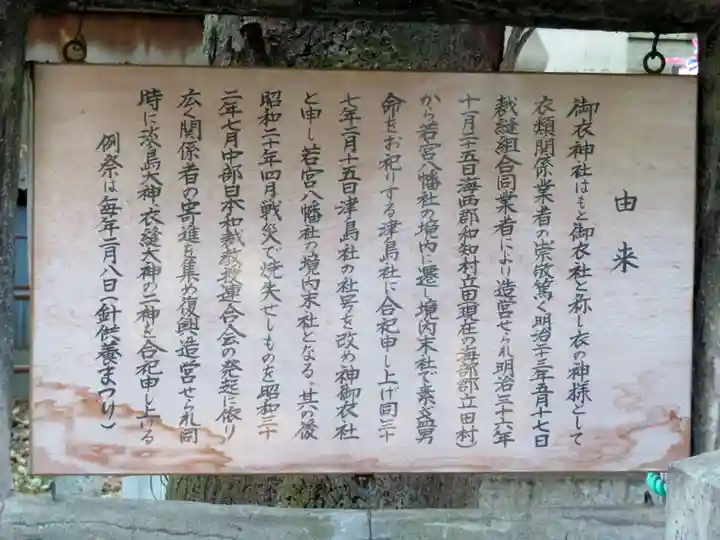 由来
御衣神社はもと御衣社と称し衣の神様として
衣類関係業者の崇敬篤く明治二十三年五月十七日
裁縫組合同業者により造営せられ明治三十六年
十一月二十五日海西郡和知村立田現在の海部郡立田村)
から若宮八幡社の境内に遷し境内末社で素盞男
命をお祀りする津島社に合祀申し上げ同三十
七年二月十五日津島社の社号を改め神御衣社
と申し若宮八幡社の境内末社となる。其の後
昭和二十年四月戦災で焼失せしものを昭和三十
二年七月中部日本和裁教授連合会の発起に依り
広く関係者の寄進を集め復興造営せられ同
時に淡島大神、衣縫大神の二神を合祀申し上いる
例祭は毎年二月八日(針供養まつり)